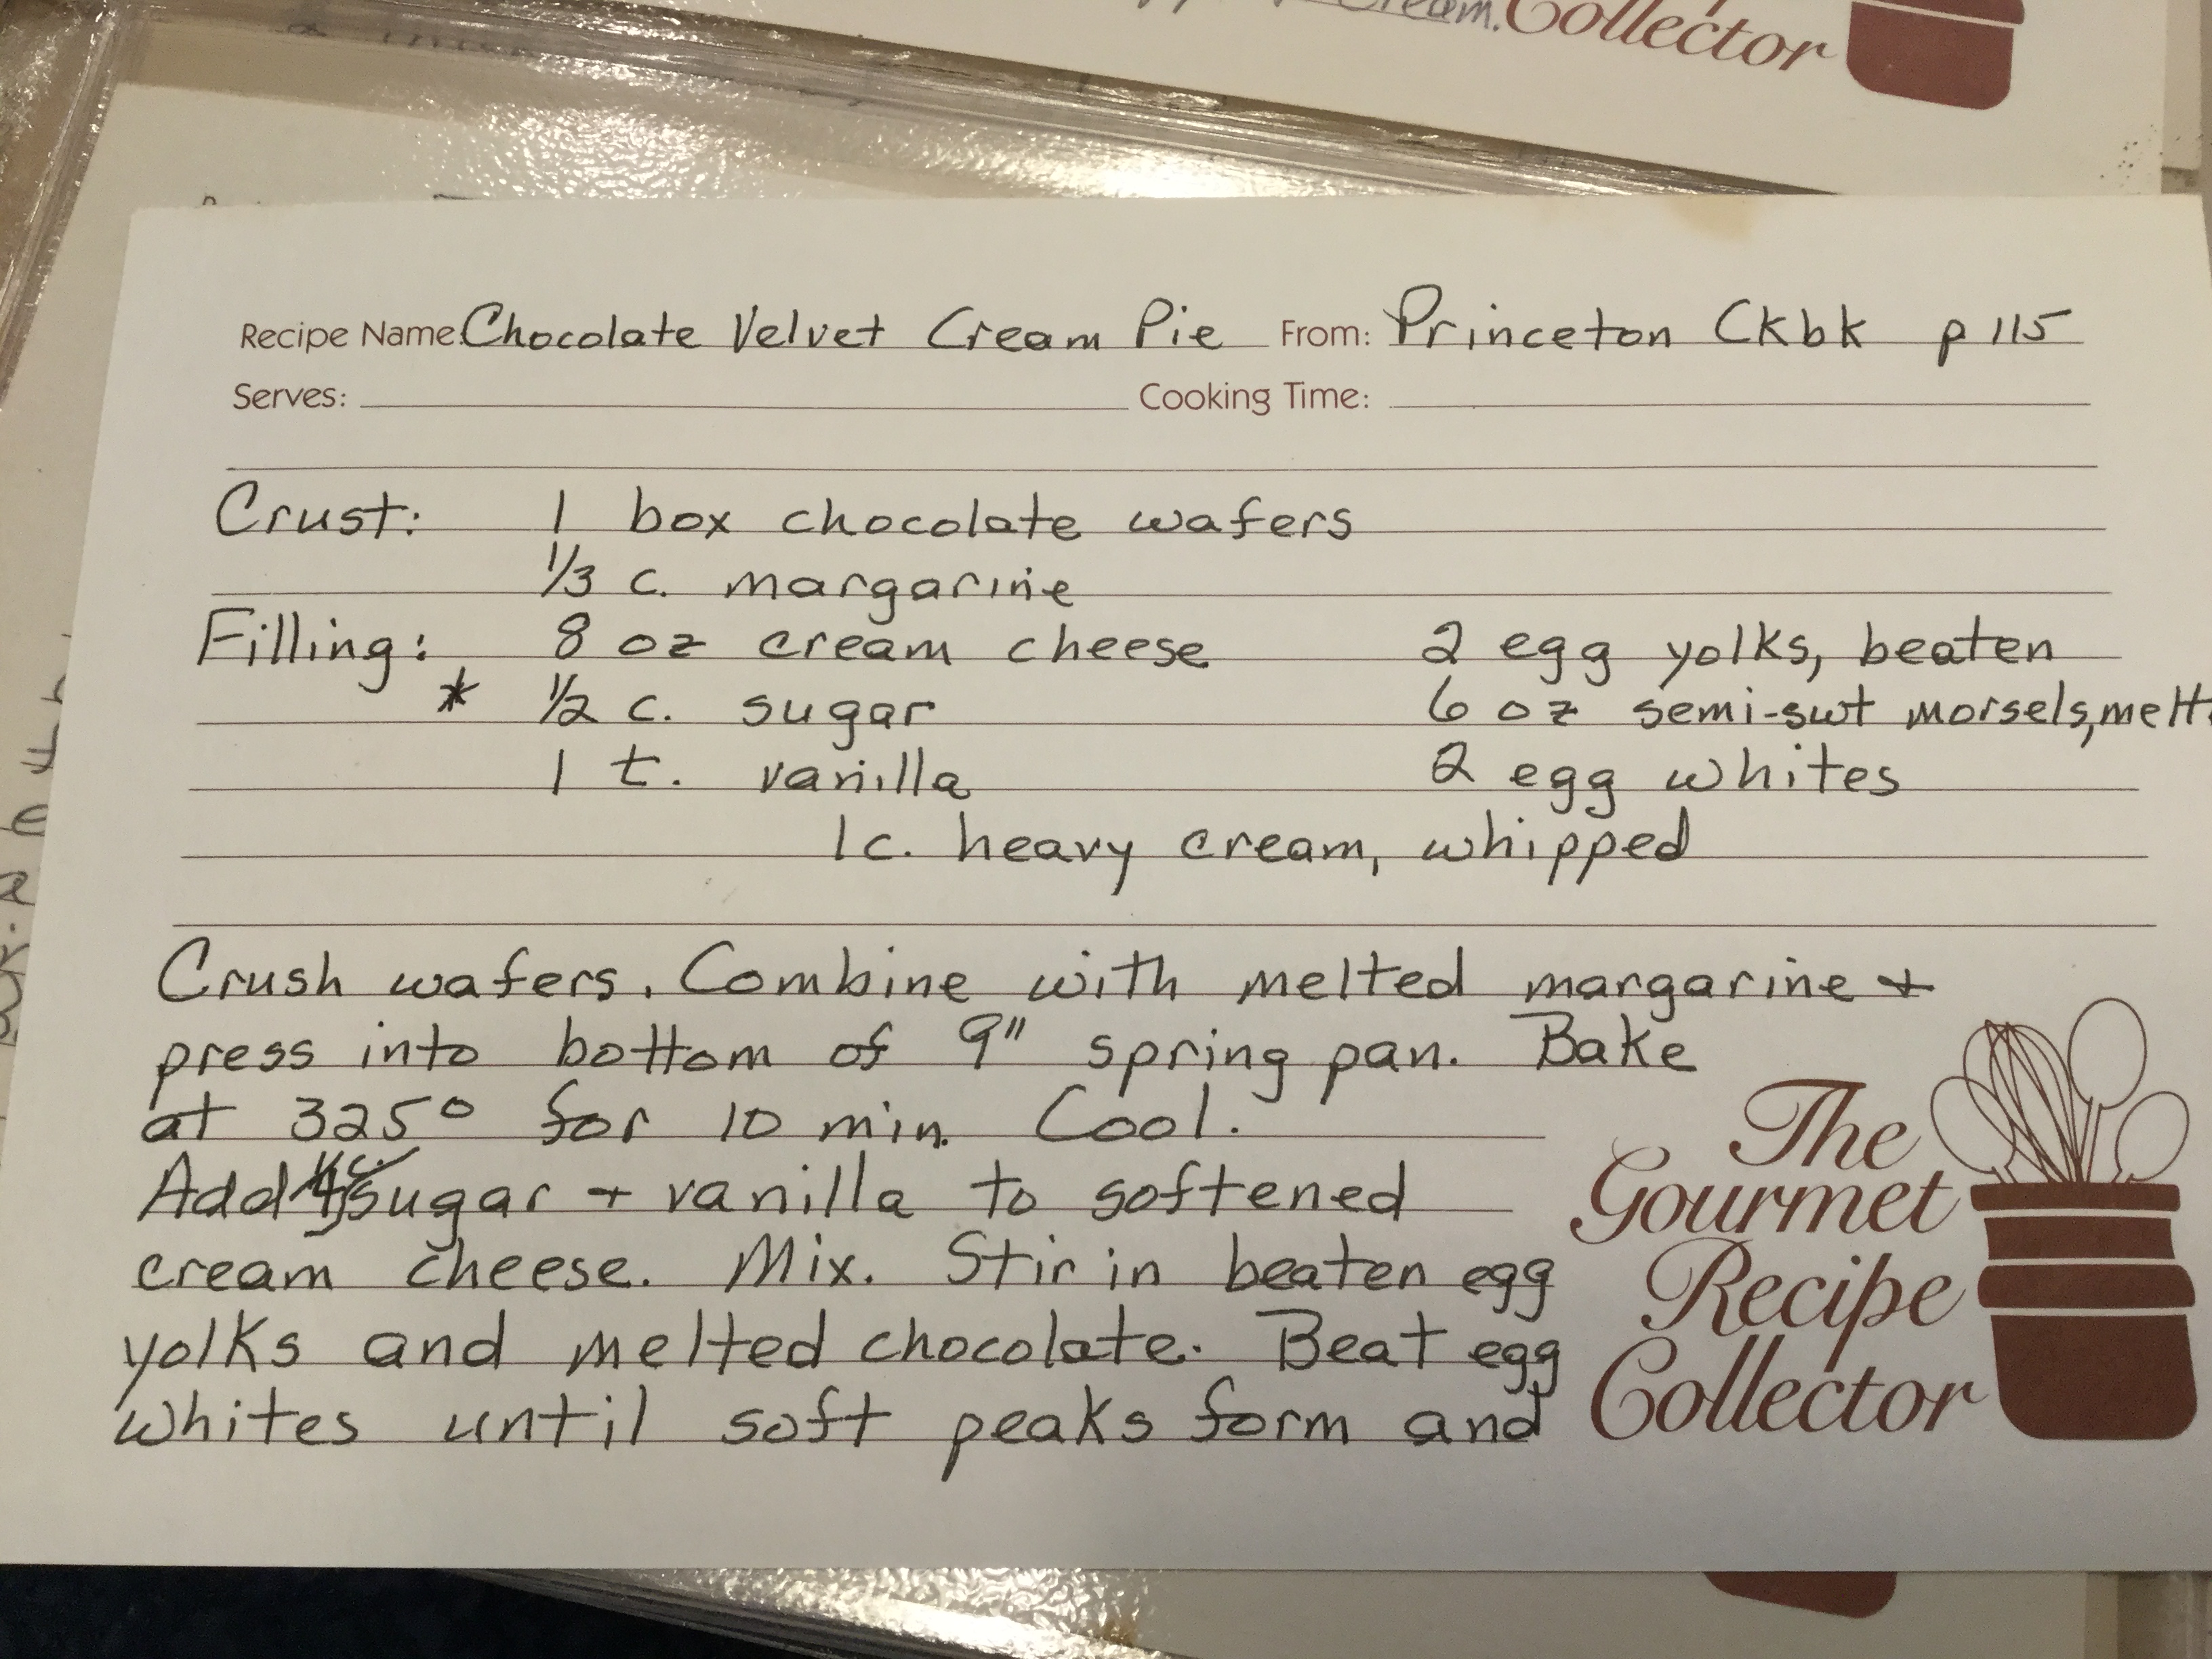 Cream. Collector
Recipe Name: Chocolate Velvet Cream Pie From: Princeton Ckbk p 115
Serves: Cooking Time:
Crust: 1 box chocolate wafers
1/3 c. margarine
Filling: 8 oz cream cheese 2 egg yolks, beaten
* 1/2 c. sugar 6 oz semi-swt morsels, melt
1 t. vanilla 2 egg whites
1 c. heavy cream, whipped
Crush wafers. Combine with melted margarine +
press into bottom of 9" spring pan. Bake
at 325° for 10 min. Cool.
Add sugar + vanilla to softened
cream cheese. Mix. Stir in beaten egg
yolks and melted chocolate. Beat egg
whites until soft peaks form and
The
Gourmet
Recipe
Collector